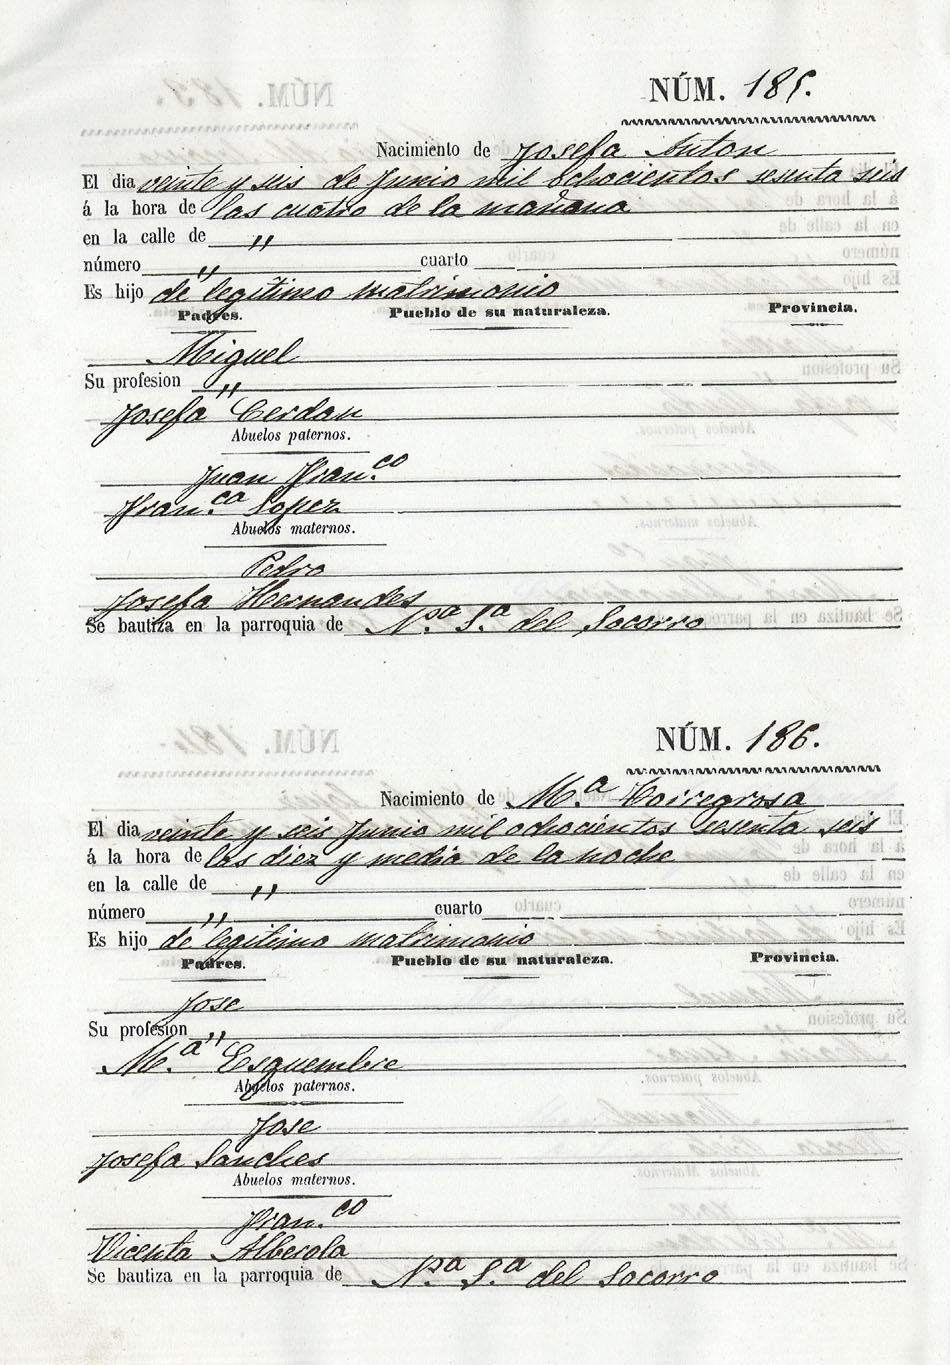 NÚM. 185.
Nacimiento de Josefa Anton
El dia veinte y seis de Junio mil ochocientos sesenta seis
á la hora de las cuatro de la mañana
en la calle de "
número " cuarto
Es hijo de legitimo matrimonio
Padres. Pueblo de su naturaleza. Provincia.
Miguel
Su profesion "
Josefa Cerdan
Abuelos paternos.
Juan Fran.co
Fran.ca Lopez
Abuelos maternos.
Pedro
Josefa Hernandes
Se bautiza en la parroquia de N.ra S.a del Socorro
NÚM. 186.
Nacimiento de M.a Torregrosa
El dia veinte y seis Junio mil ochocientos sesenta seis
á la hora de las diez y media de la noche
en la calle de "
número " cuarto
Es hijo de legitimo matrimonio
Padres. Pueblo de su naturaleza. Provincia.
Jose
Su profesion "
M.a Esquembre
Abuelos paternos.
Jose
Josefa Sanches
Abuelos maternos.
Fran.co
Vicenta Alberola
Se bautiza en la parroquia de N.ra S.a del Socorro